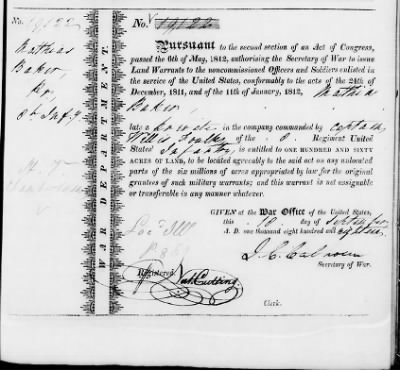 No. 19122
No. 19122
Mathias
Baker,
8th Inf'y
WAR DEPARTMENT.
Pursuant to the second section of an Act of Congress,
passed the 6th of May, 1812, authorising the Secretary of War to issue
Land Warrants to the noncommissioned Officers and Soldiers enlisted in
the service of the United States, conformably to the acts of the 24th of
December, 1811, and of the 11th of January, 1812, Mathias
Baker
late a private in the company commanded by Captain
Willis Foulk of the 8 Regiment United
States Infantry, is entitled to ONE HUNDRED AND SIXTY
ACRES OF LAND, to be located agreeably to the said act on any unlocated
parts of the six millions of acres appropriated by law for the original
grantees of such military warrants; and this warrant is not assignable
or transferable in any manner whatever.
GIVEN at the War Office of the United States,
this 10 day of September
A. D. one thousand eight hundred and eighteen
J. C. Calhoun
Secretary of War.
Loc'd Ill
Registered
Nat Cutting
Clerk.